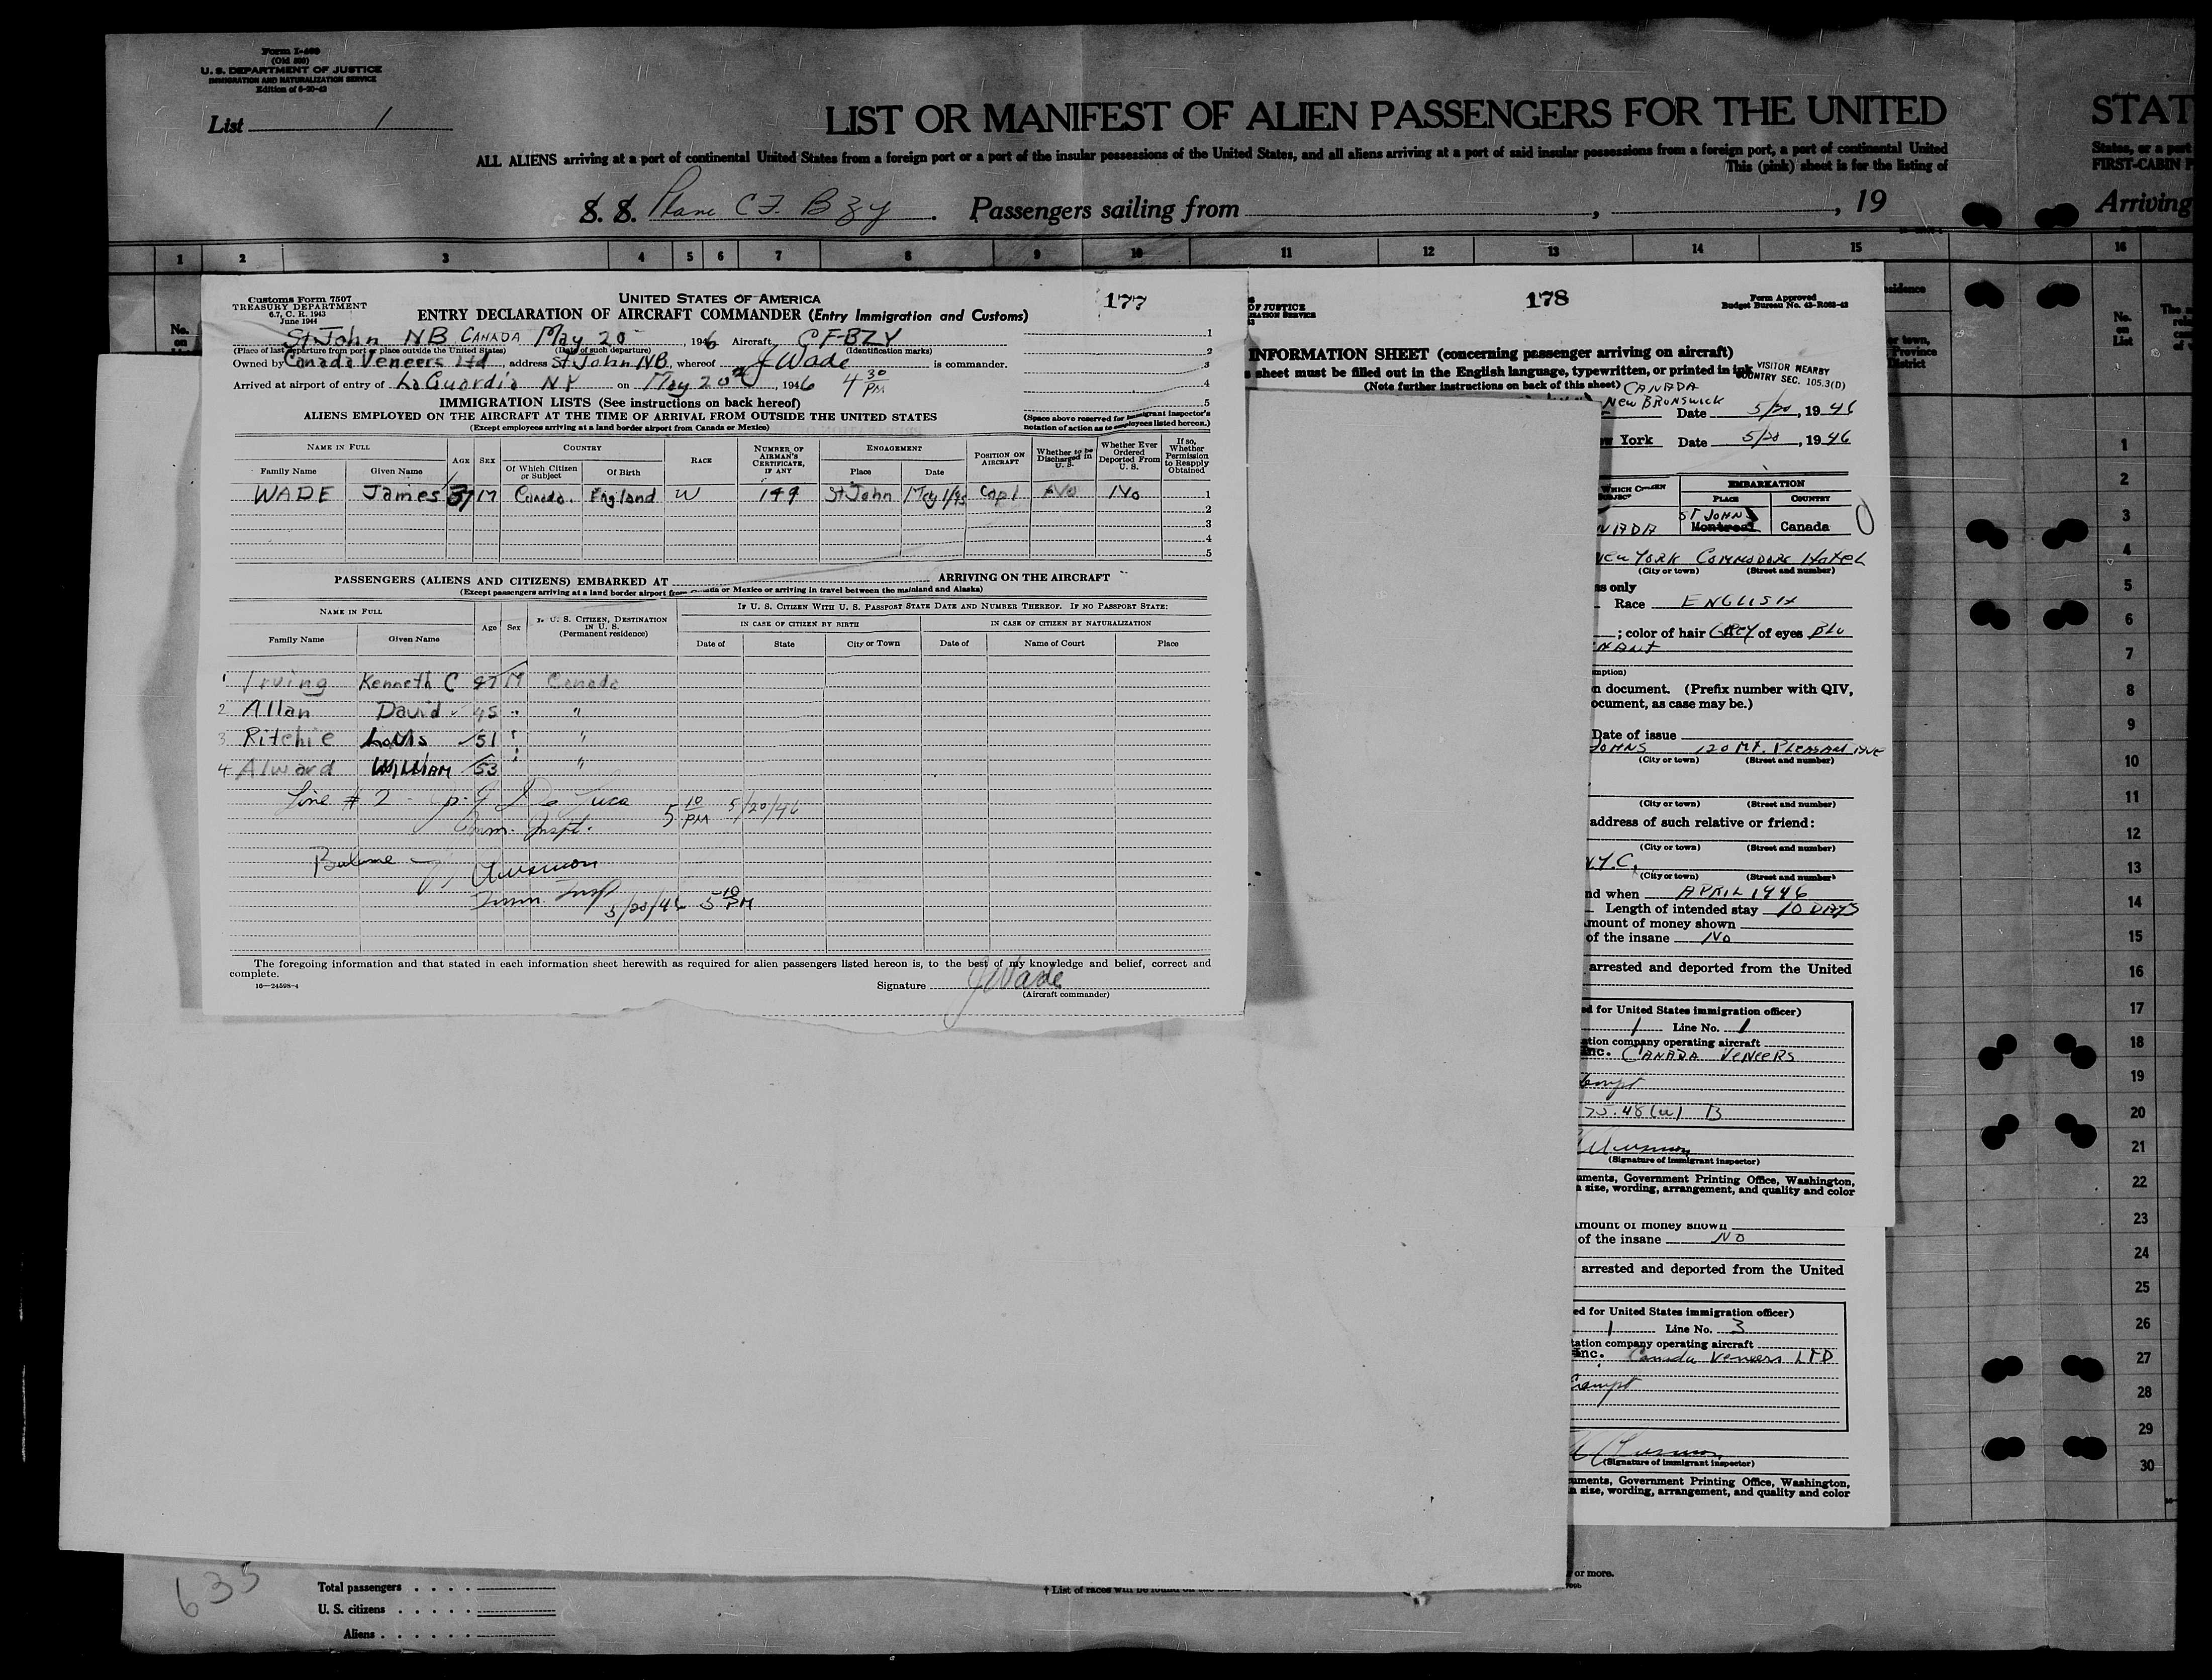 Form I-400
(Old 500)
U. S. DEPARTMENT OF JUSTICE
IMMIGRATION AND NATURALIZATION SERVICE
Edition of 6-20-43
List 1
LIST OR MANIFEST OF ALIEN PASSENGERS FOR THE UNITED
STAT
ALL ALIENS arriving at a port of continental United States from a foreign port or a port of the insular possessions of the United States, and all aliens arriving at a port of said insular possessions from a foreign port, a port of continental United
States, or a port
This (pink) sheet is for the listing of
FIRST-CABIN P
S. S. Plane C F. B Z Y . Passengers sailing from , , 19
Arriving
1 2 3 4 5 6 7 8 9 10 11 12 13 14 15 16
No.
on
Customs Form 7507
TREASURY DEPARTMENT
6.7, C. R. 1943
June 1944
UNITED STATES OF AMERICA
177
ENTRY DECLARATION OF AIRCRAFT COMMANDER (Entry Immigration and Customs)
St John NB CANADA May 20 , 1946 Aircraft CF-BZY
(Place of last departure from port or place outside the United States) (Date of such departure) (Identification marks)
Owned by Canada Veneers Ltd , address St John NB, whereof J Wade is commander.
Arrived at airport of entry of La Guardia NY on May 20th , 1946 4 30 PM
1
2
3
4
5
IMMIGRATION LISTS (See instructions on back hereof)
ALIENS EMPLOYED ON THE AIRCRAFT AT THE TIME OF ARRIVAL FROM OUTSIDE THE UNITED STATES
(Except employees arriving at a land border airport from Canada or Mexico)
(Space above reserved for immigrant inspector's
notation of action as to employees listed hereon.)
NAME IN FULL AGE SEX COUNTRY RACE NUMBER OF AIRMAN'S CERTIFICATE, IF ANY ENGAGEMENT POSITION ON AIRCRAFT Whether to be Discharged in U. S. Whether Ever Ordered Deported From U. S. If so, Whether Permission to Reapply Obtained
Family Name Given Name Of Which Citizen or Subject Of Birth Place Date
WADE James 37 M Canada. England W 149 St John May 1/45 Capt No No 1
2
3
4
5
PASSENGERS (ALIENS AND CITIZENS) EMBARKED AT ARRIVING ON THE AIRCRAFT
(Except passengers arriving at a land border airport from Canada or Mexico or arriving in travel between the mainland and Alaska)
NAME IN FULL Age Sex If U. S. CITIZEN, DESTINATION IN U. S. (Permanent residence) IF U. S. CITIZEN WITH U. S. PASSPORT STATE DATE AND NUMBER THEREOF. IF NO PASSPORT STATE:
IN CASE OF CITIZEN BY BIRTH IN CASE OF CITIZEN BY NATURALIZATION
Family Name Given Name Date of State City or Town Date of Name of Court Place
1 Irving Kenneth C 47 M Canada
2 Allan David 45 " "
3 Ritchie Louis 51 " "
4 Alward William 53 " "
Line # 2 J De Luca 5 10 PM 5/20/46
Imm. Inspt.
Balance
Imm. Insp
5/20/46 5 10 PM
The foregoing information and that stated in each information sheet herewith as required for alien passengers listed hereon is, to the best of my knowledge and belief, correct and
complete.
16—24598-4
Signature J Wade
(Aircraft commander)
OF JUSTICE
178
Form Approved
Budget Bureau No. 43-R063-43
INFORMATION SHEET (concerning passenger arriving on aircraft)
sheet must be filled out in the English language, typewritten, or printed in ink
VISITOR NEARBY
COUNTRY SEC. 105.3(D)
(Note further instructions on back of this sheet) CANADA
New BRUNSWICK Date 5/20, 1946
York Date 5/20, 1946
WHICH CITIZEN EMBARKATION
PLACE COUNTRY
NADA ST JOHNS Montreal Canada
New YORK COMMODORE Hotel
(City or town) (Street and number)
as only
Race ENGLISH
; color of hair GREY of eyes BLU
mption)
n document. (Prefix number with QIV,
ocument, as case may be.)
Date of issue
JOHNS 120 MT. PLEASANT AVE
(City or town) (Street and number)
(City or town) (Street and number)
address of such relative or friend:
(City or town) (Street and number)
N.Y.C.
(City or town) (Street and number)
nd when APRIL 1946
Length of intended stay 10 DAYS
mount of money shown
of the insane No
arrested and deported from the United
ed for United States immigration officer)
1 Line No. 1
ation company operating aircraft
Inc. CANADA VENEERS
75.48(u) B
(Signature of immigrant inspector)
uments, Government Printing Office, Washington,
a size, wording, arrangement, and quality and color
mount of money shown
of the insane NO
arrested and deported from the United
ed for United States immigration officer)
1 Line No. 3
tation company operating aircraft
Inc. Canada Veneers LTD
Exempt
(Signature of immigrant inspector)
uments, Government Printing Office, Washington,
a size, wording, arrangement, and quality and color
sidence
or town,
Province
District
No.
on
List
1
2
3
4
5
6
7
8
9
10
11
12
13
14
15
16
17
18
19
20
21
22
23
24
25
26
27
28
29
30
635
Total passengers . . . .
U. S. citizens . . . . .
Aliens . . . . . .
† List of races will be found on the
or more.